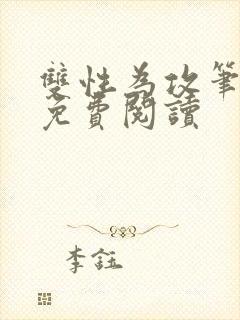 雙性為攻筆
免費閱讀
李鈺